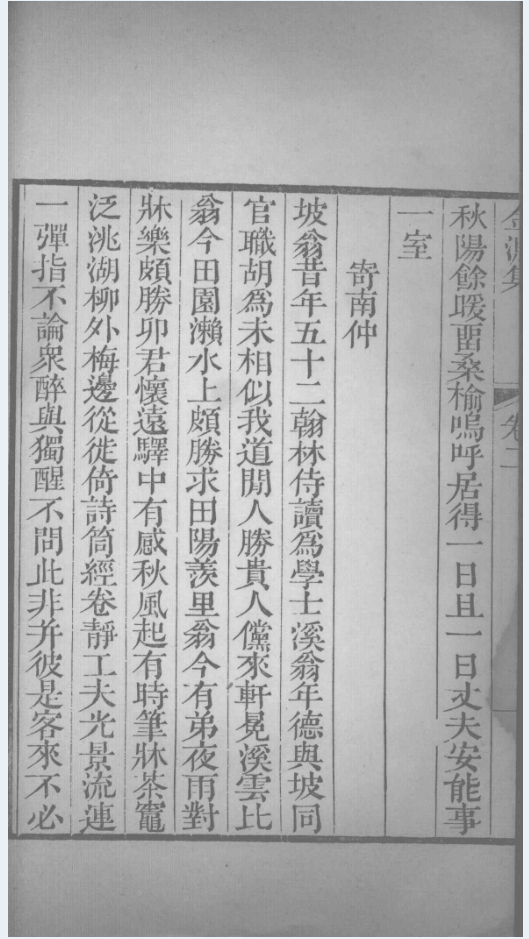 金淵集 卷二
秋陽餘暖畱桑榆嗚呼居得一日且一日丈夫安能事
一室
寄南仲
坡翁昔年五十二翰林侍讀爲學士溪翁年德與坡同
官職胡爲未相似我道閒人勝貴人儻來軒冕溪雲比
翁今田園瀨水上頗勝求田陽羨里翁今有弟夜雨對
牀樂頗勝卯君懷遠驛中有感秋風起有時筆牀茶竈
泛洮湖柳外梅邊從徙倚詩筒經卷靜工夫光景流連
一彈指不論衆醉與獨醒不問此非并彼是客來不必